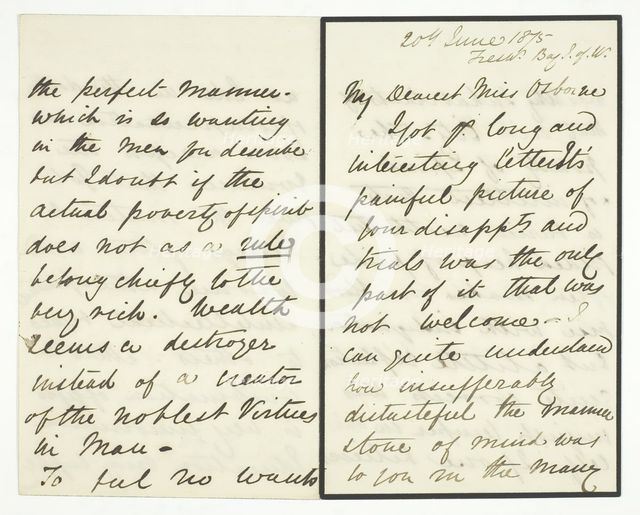 20th June 1875
Freshr Bay I. of W.
My Dearest Miss Osborne
I got yr long and
interesting letter. Its
painful picture of
your disappts and
trials was the only
part of it that was
not welcome - I
can quite understand
how insufferably
distasteful the manner
& tone of mind was
to you in the many
the perfect manner -
which is so wanting
in the men you describe
but I doubt if the
actual poverty of spirit
does not as a rule
belong chiefly to the
very rich. Wealth
seems a destroyer
instead of a creator
of the noblest Virtues
in Man -
To feel no wants